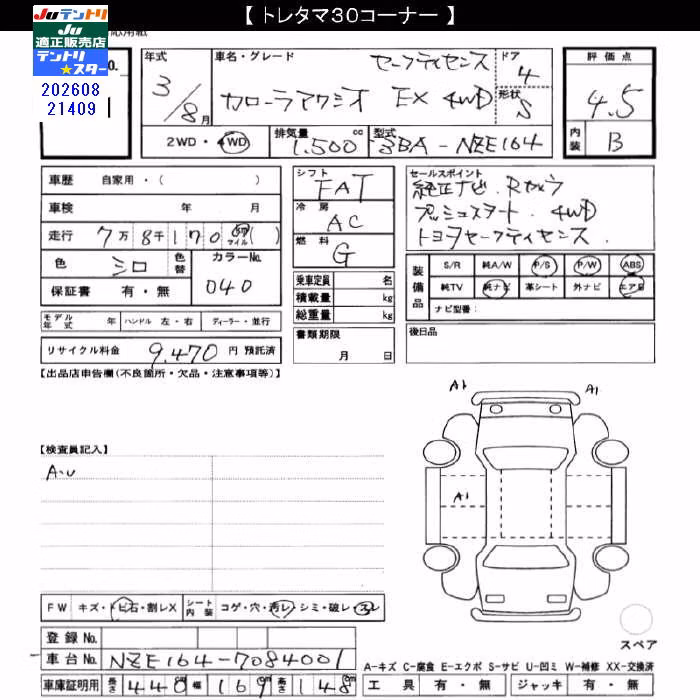 【 トレタマ30コーナー 】
JU テントリ
JU
適正販売店
テントリ
★スター
No.
202608
21409
年式
3/8月
車名・グレード
セーフティセンス
カローラアクシオ EX 4WD
ドア
4
形状
S
評価点
4.5
内装
B
2WD・4WD
排気量
1.500 cc
型式
3BA-NZE164
車歴 自家用・( )
車検 年 月
走行 7万8千170 km マイル ( )
色 シロ 色替
カラーNo.
040
保証書 有・無
シフト
FAT
冷房
AC
燃料
G
乗車定員 名
積載量 kg
総重量 kg
書類期限
月 日
セールスポイント
純正ナビ. Rカメラ
プッシュスタート. 4WD
トヨタセーフティセンス.
装備品
S/R 純A/W P/S P/W ABS
純TV 純ナビ 革シート 外ナビ エアB
ナビ型番:
モデル年式 年 ハンドル 左・右 ディーラー・並行
リサイクル料金 9.470 円 預託済
後日品
【出品店申告欄(不良箇所・欠品・注意事項等)】
A1 A1
【検査員記入】
A.U
A1
FW キズ・トビ石・割レX
シート内装 コゲ・穴・汚レ・シミ・破レ・スレ
登録 No.
車台 No. NZE164-7084001
スペア
A-キズ C-腐食 E-エクボ S-サビ U-凹ミ W-補修 XX-交換済
車庫証明用 長さ 440cm 幅 169cm 高さ 148cm
工具 有・無 ジャッキ 有・無